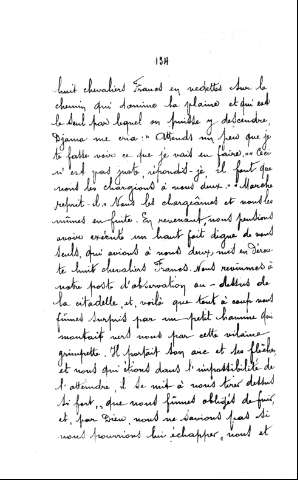 134
huit chevaliers Francs en vedettes sur le
chemin qui domine la plaine et qui est
le seul par lequel on puisse y descendre.
Djama me cria: "Attends un peu que je
te fasse voir ce que je vais en faire." "Ceci
n'est pas juste, répondis-je, il faut que
nous les chargions à nous deux." "Marche
reprit-il." Nous les chargeâmes et nous les
mîmes en fuite. En revenant nous pensions
avoir exécuté un haut fait digne de nous
seuls, qui avions à nous deux, mis en dérou-
te huit chevaliers Francs. Nous revinmes à
notre poste d'observation au-dessus de
la citadelle et, voilà que tout à coup nous
fûmes surpris par un petit homme qui
montait vers nous par cette vilaine
grimpette. Il portait son arc et ses flèches,
et nous qui étions dans l'impossibilité de
l'atteindre, il se mit à nous tirer dessus
si fort, que nous fûmes obligés de fuir,
et, par Dieu, nous ne savions pas si
nous pourrions lui échapper, nous et